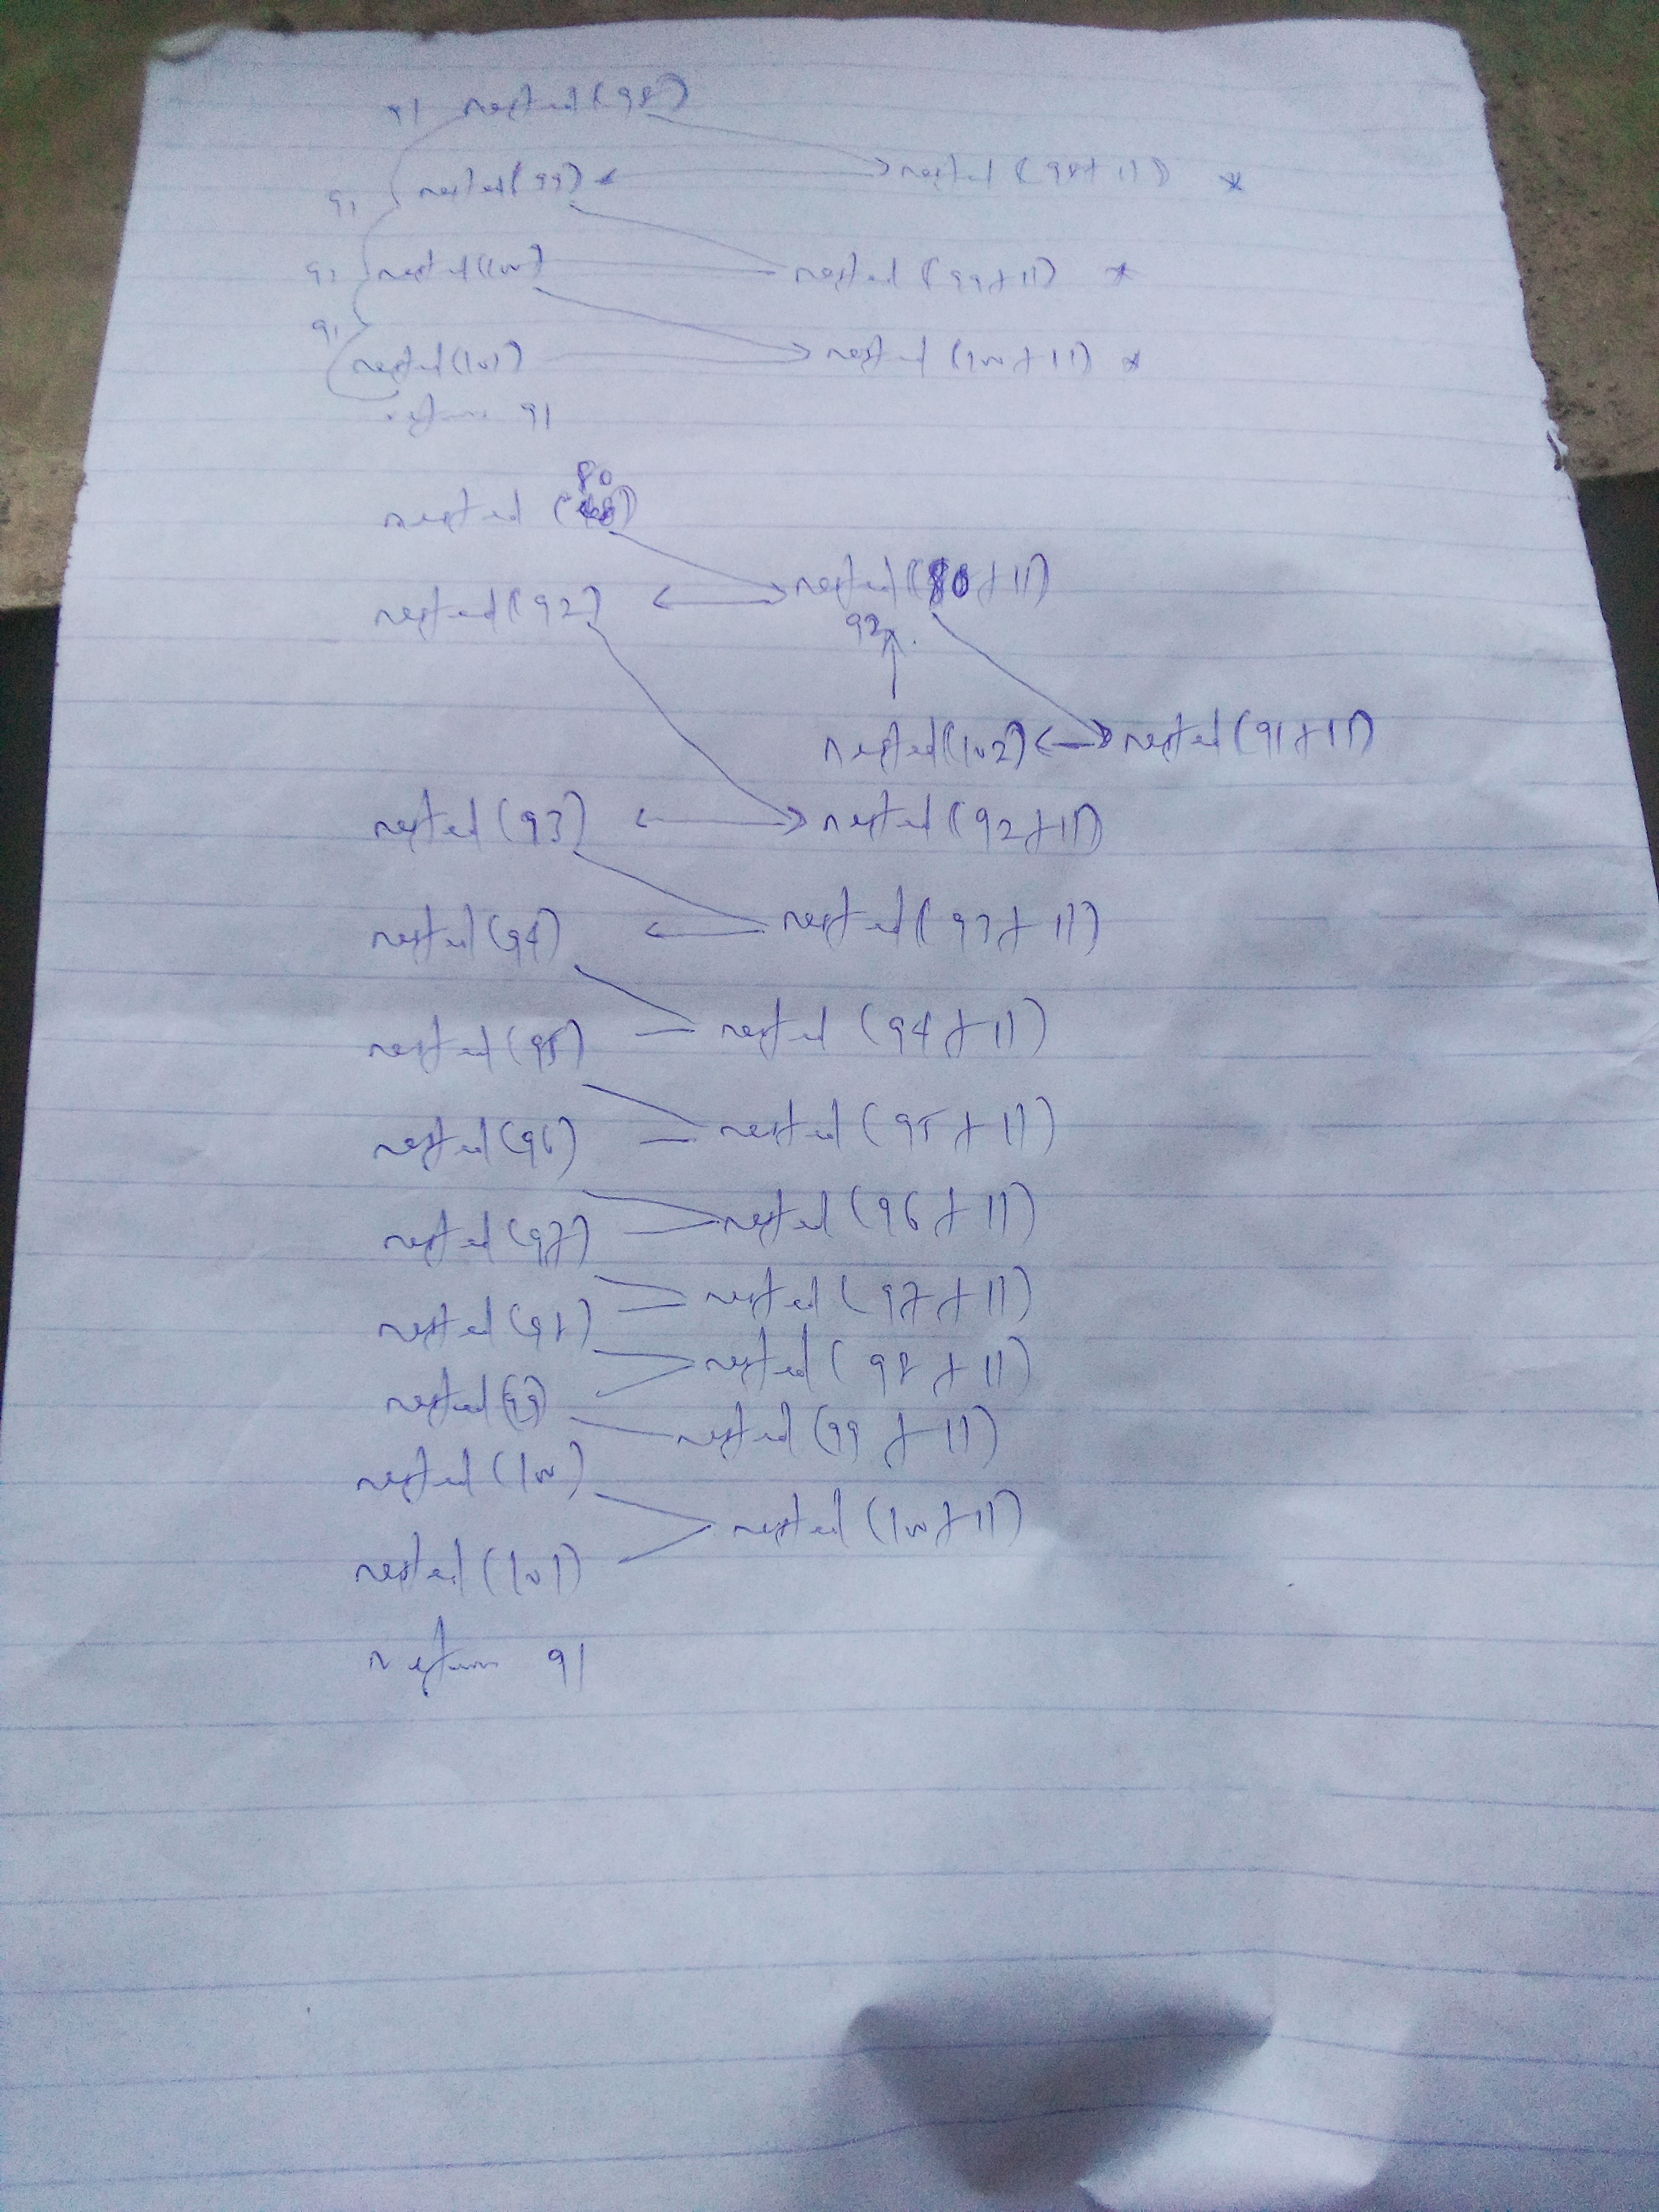 91 nested(98)
91 nested(99) nested(98+11) *
91 nested(100) nested(99+11) *
91 nested(101) nested(100+11) *
return 91
80
nested ( )
nested(92) nested(80+11)
92
nested(102) nested(91+11)
nested(93) nested(92+11)
nested(94) nested(93+11)
nested(95) nested(94+11)
nested(96) nested(95+11)
nested(97) nested(96+11)
nested(98) nested(97+11)
nested(99) nested(98+11)
nested(100) nested(99+11)
nested(101) nested(100+11)
return 91